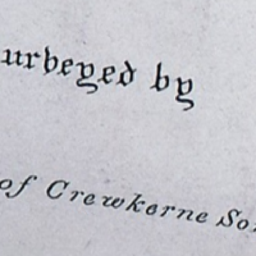 urveyed by
of Crewkerne So